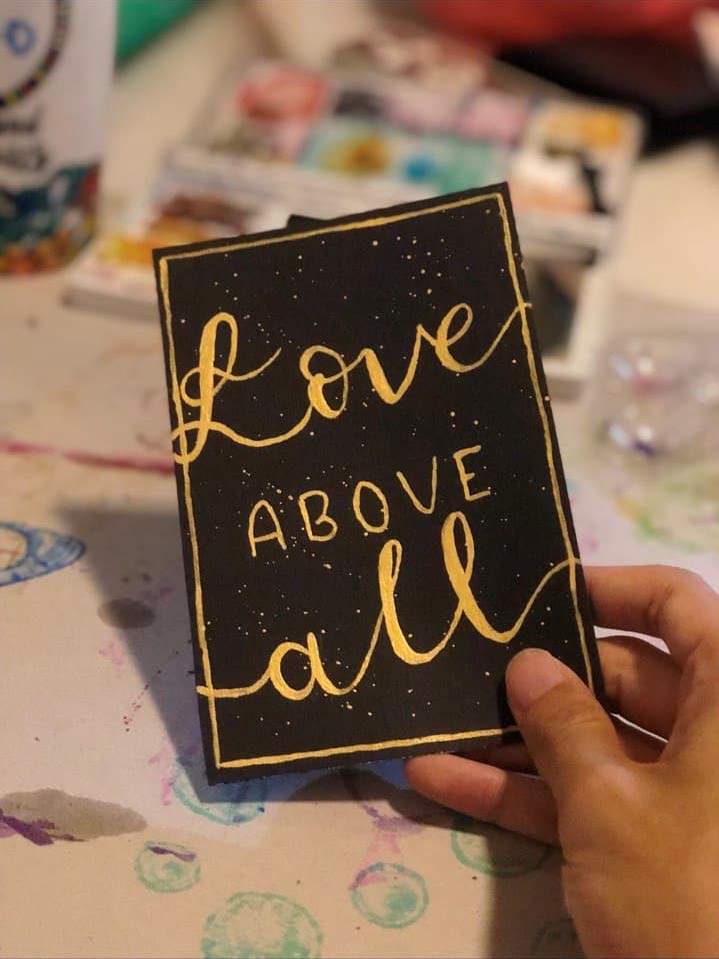 Love
ABOVE
all